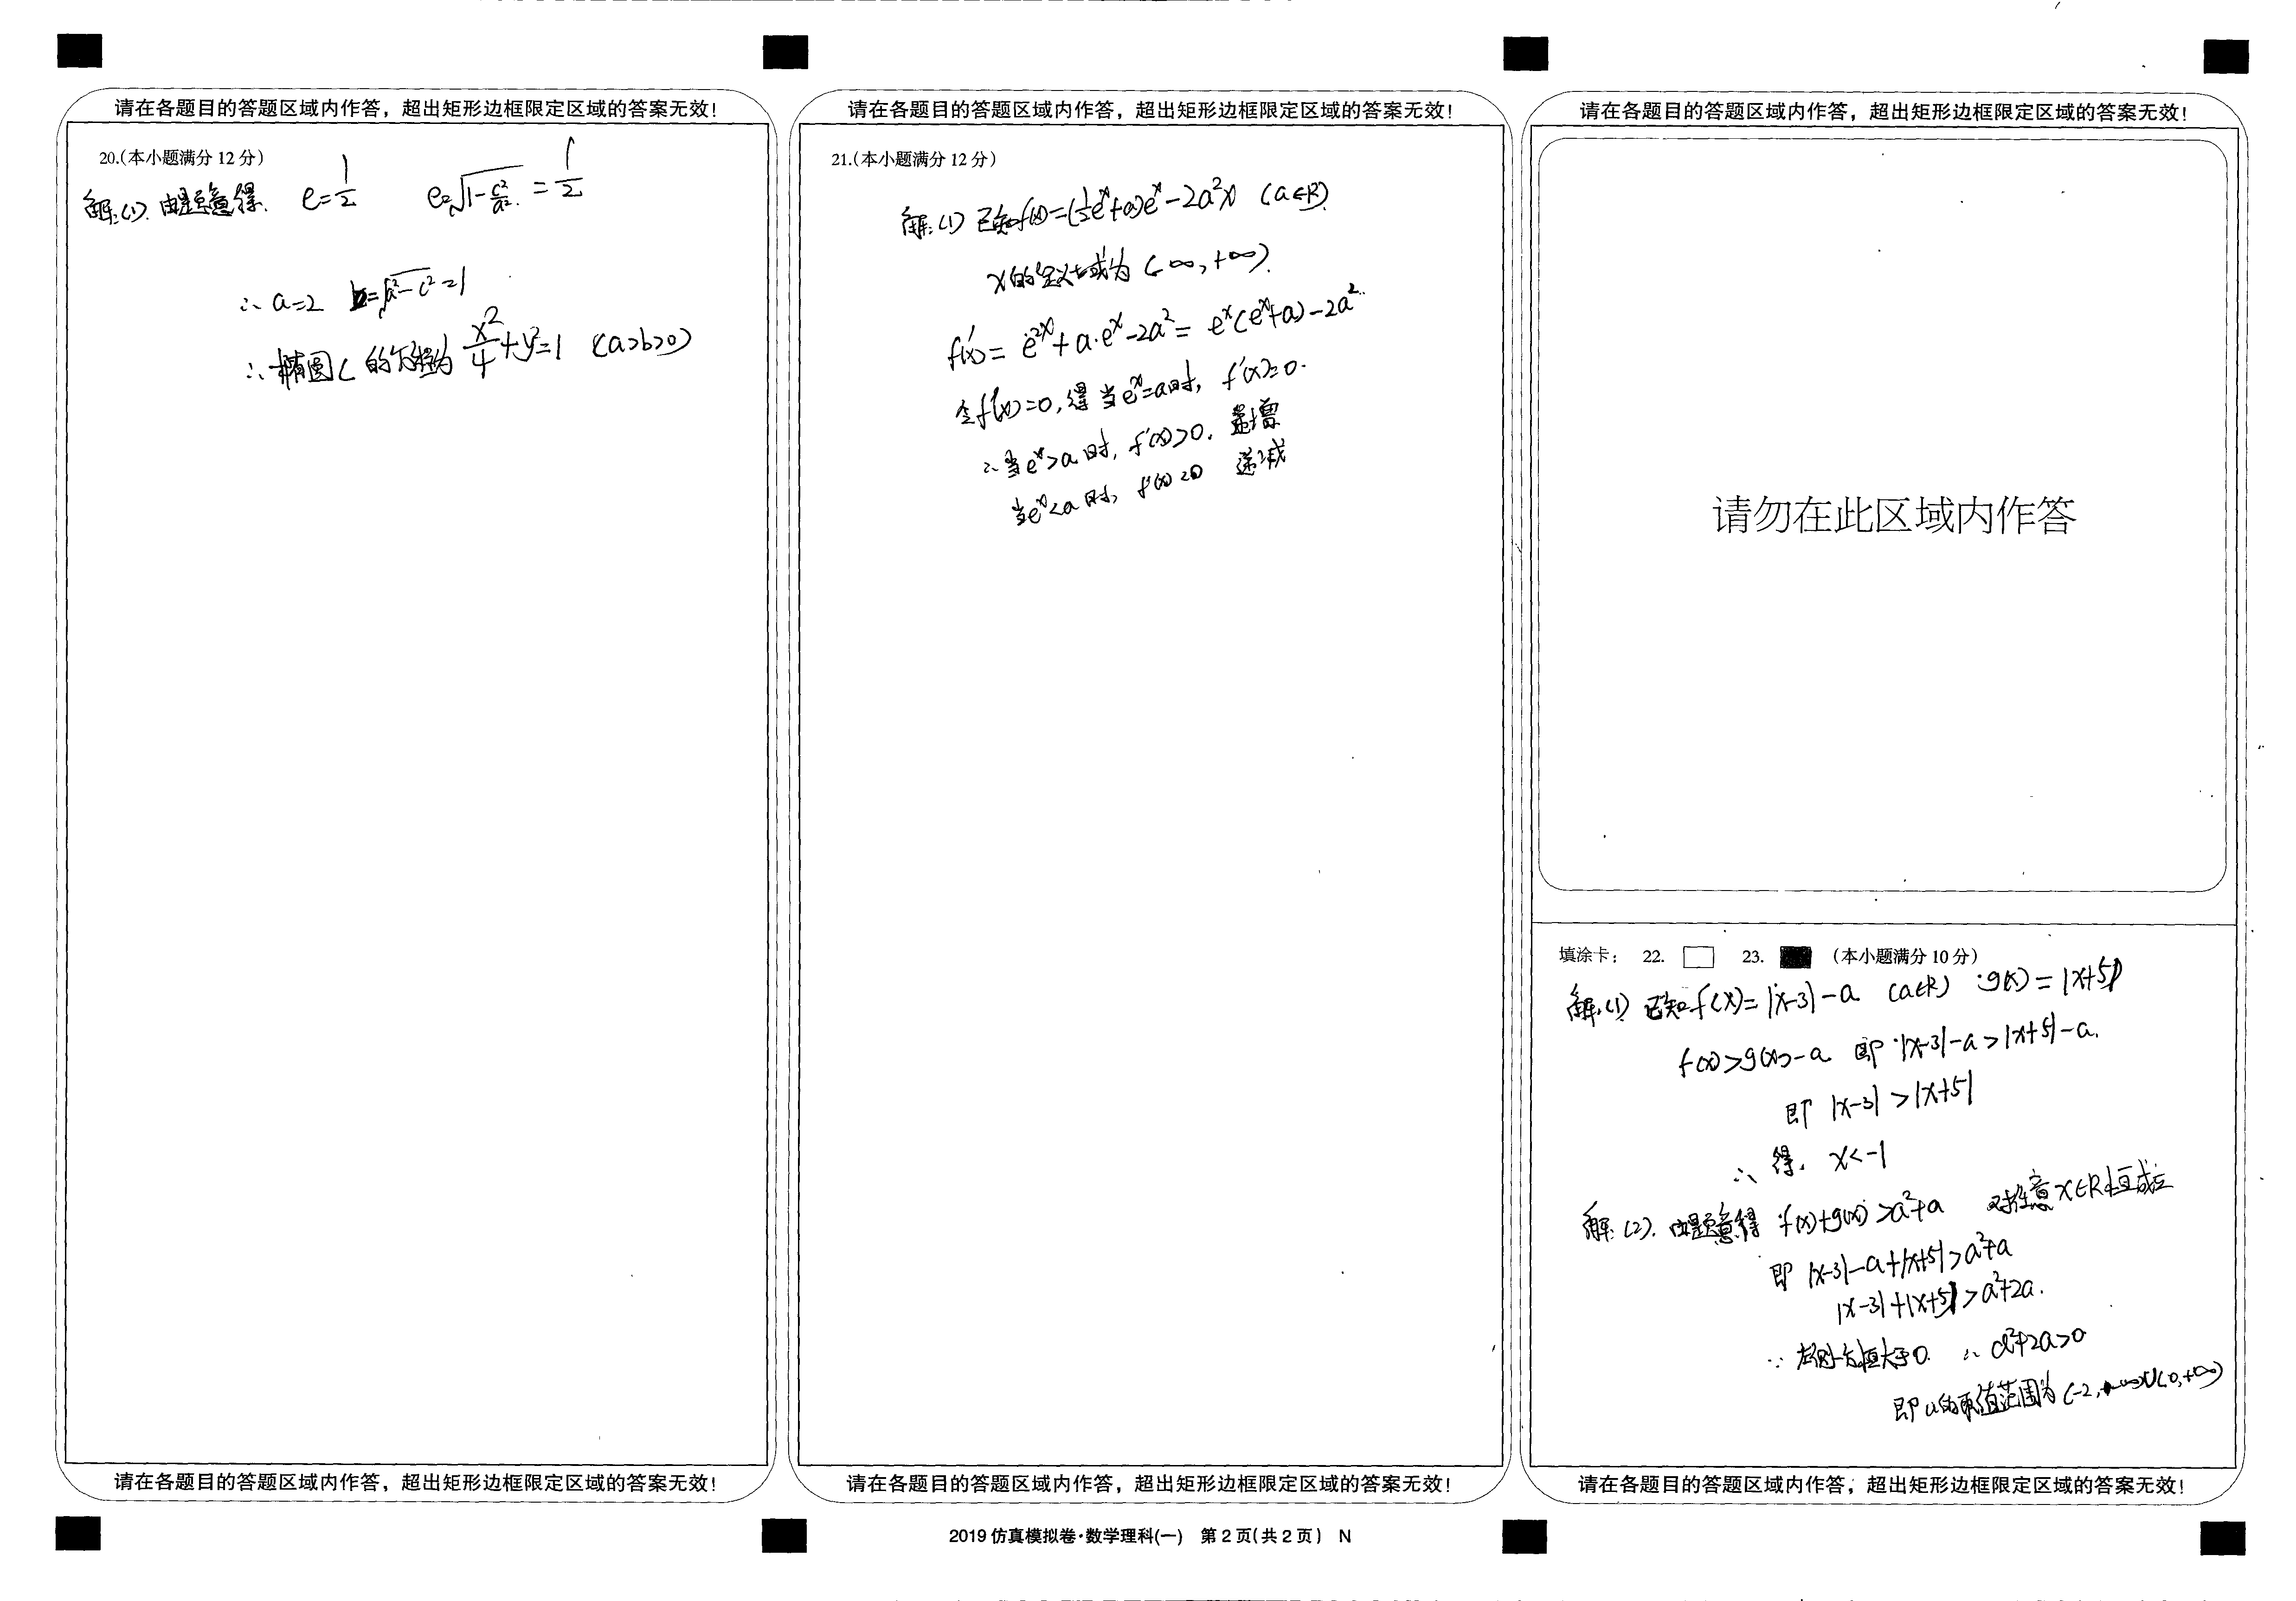 请在各题目的答题区域内作答，超出矩形边框限定区域的答案无效！
20.(本小题满分 12 分)
解:(1). 由题意得. e=1/2 e=√(1-c²/a²)=1/2
∴ a=2 b=√(a²-c²)=1
∴ 椭圆C 的方程为 x²/4+y²=1 (a>b>0)
请在各题目的答题区域内作答，超出矩形边框限定区域的答案无效！
请在各题目的答题区域内作答，超出矩形边框限定区域的答案无效！
21.(本小题满分 12 分)
解:(1) 已知f(x)=(½eˣ+a)eˣ-2a²x (a∈R)
x的定义域为 (-∞,+∞).
f'(x)= e²ˣ+a·eˣ-2a²= eˣ(eˣ+a)-2a²
令f'(x)=0,得 当eˣ=a时, f'(x)=0.
∴当eˣ>a时, f'(x)>0. 递增
当eˣ<a时, f'(x)<0 递减
请在各题目的答题区域内作答，超出矩形边框限定区域的答案无效！
2019 仿真模拟卷·数学理科(一) 第 2 页(共 2 页) N
请在各题目的答题区域内作答，超出矩形边框限定区域的答案无效！
请勿在此区域内作答
填涂卡： 22. 23. (本小题满分 10 分)
解:(1) 已知f(x)=|x-3|-a (a∈R) g(x)=|x+5|
f(x)>g(x)-a 即 |x-3|-a>|x+5|-a.
即 |x-3|>|x+5|
∴ 得. x<-1
解:(2). 由题意得 f(x)+g(x)>a²+a 对任意x∈R恒成立
即 |x-3|-a+|x+5|>a²+a
|x-3|+|x+5|>a²+2a.
∵ 恒大于0. ∴ a²+2a>0
即a的取值范围为 (-2, ∞)∪(0,+∞)
请在各题目的答题区域内作答，超出矩形边框限定区域的答案无效！